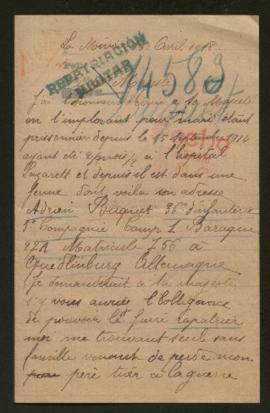 La Avril 1918.
REPATRIACIÓN
MILITAR
14583
Majesté
J'ai l'honneur a sa Majesté
en l'implorant pour mon mari étant
prisonnier depuis le 15 septembre 1914
ayant été à l'hopital
Lazarett et depuis il est dans une
ferme voila son adresse
Adrien Baquet 36e d'infanterie
Compagnie Camp 1 Baraque
27A Matricule 756 a
Quedlinburg Allemagne
je demanderait a sa majesté
vous l'obligeance
de pouvoir le faire rapatrier
moi me trouvant seul sans
famille venant de perdre mon
père tuer à la guerre